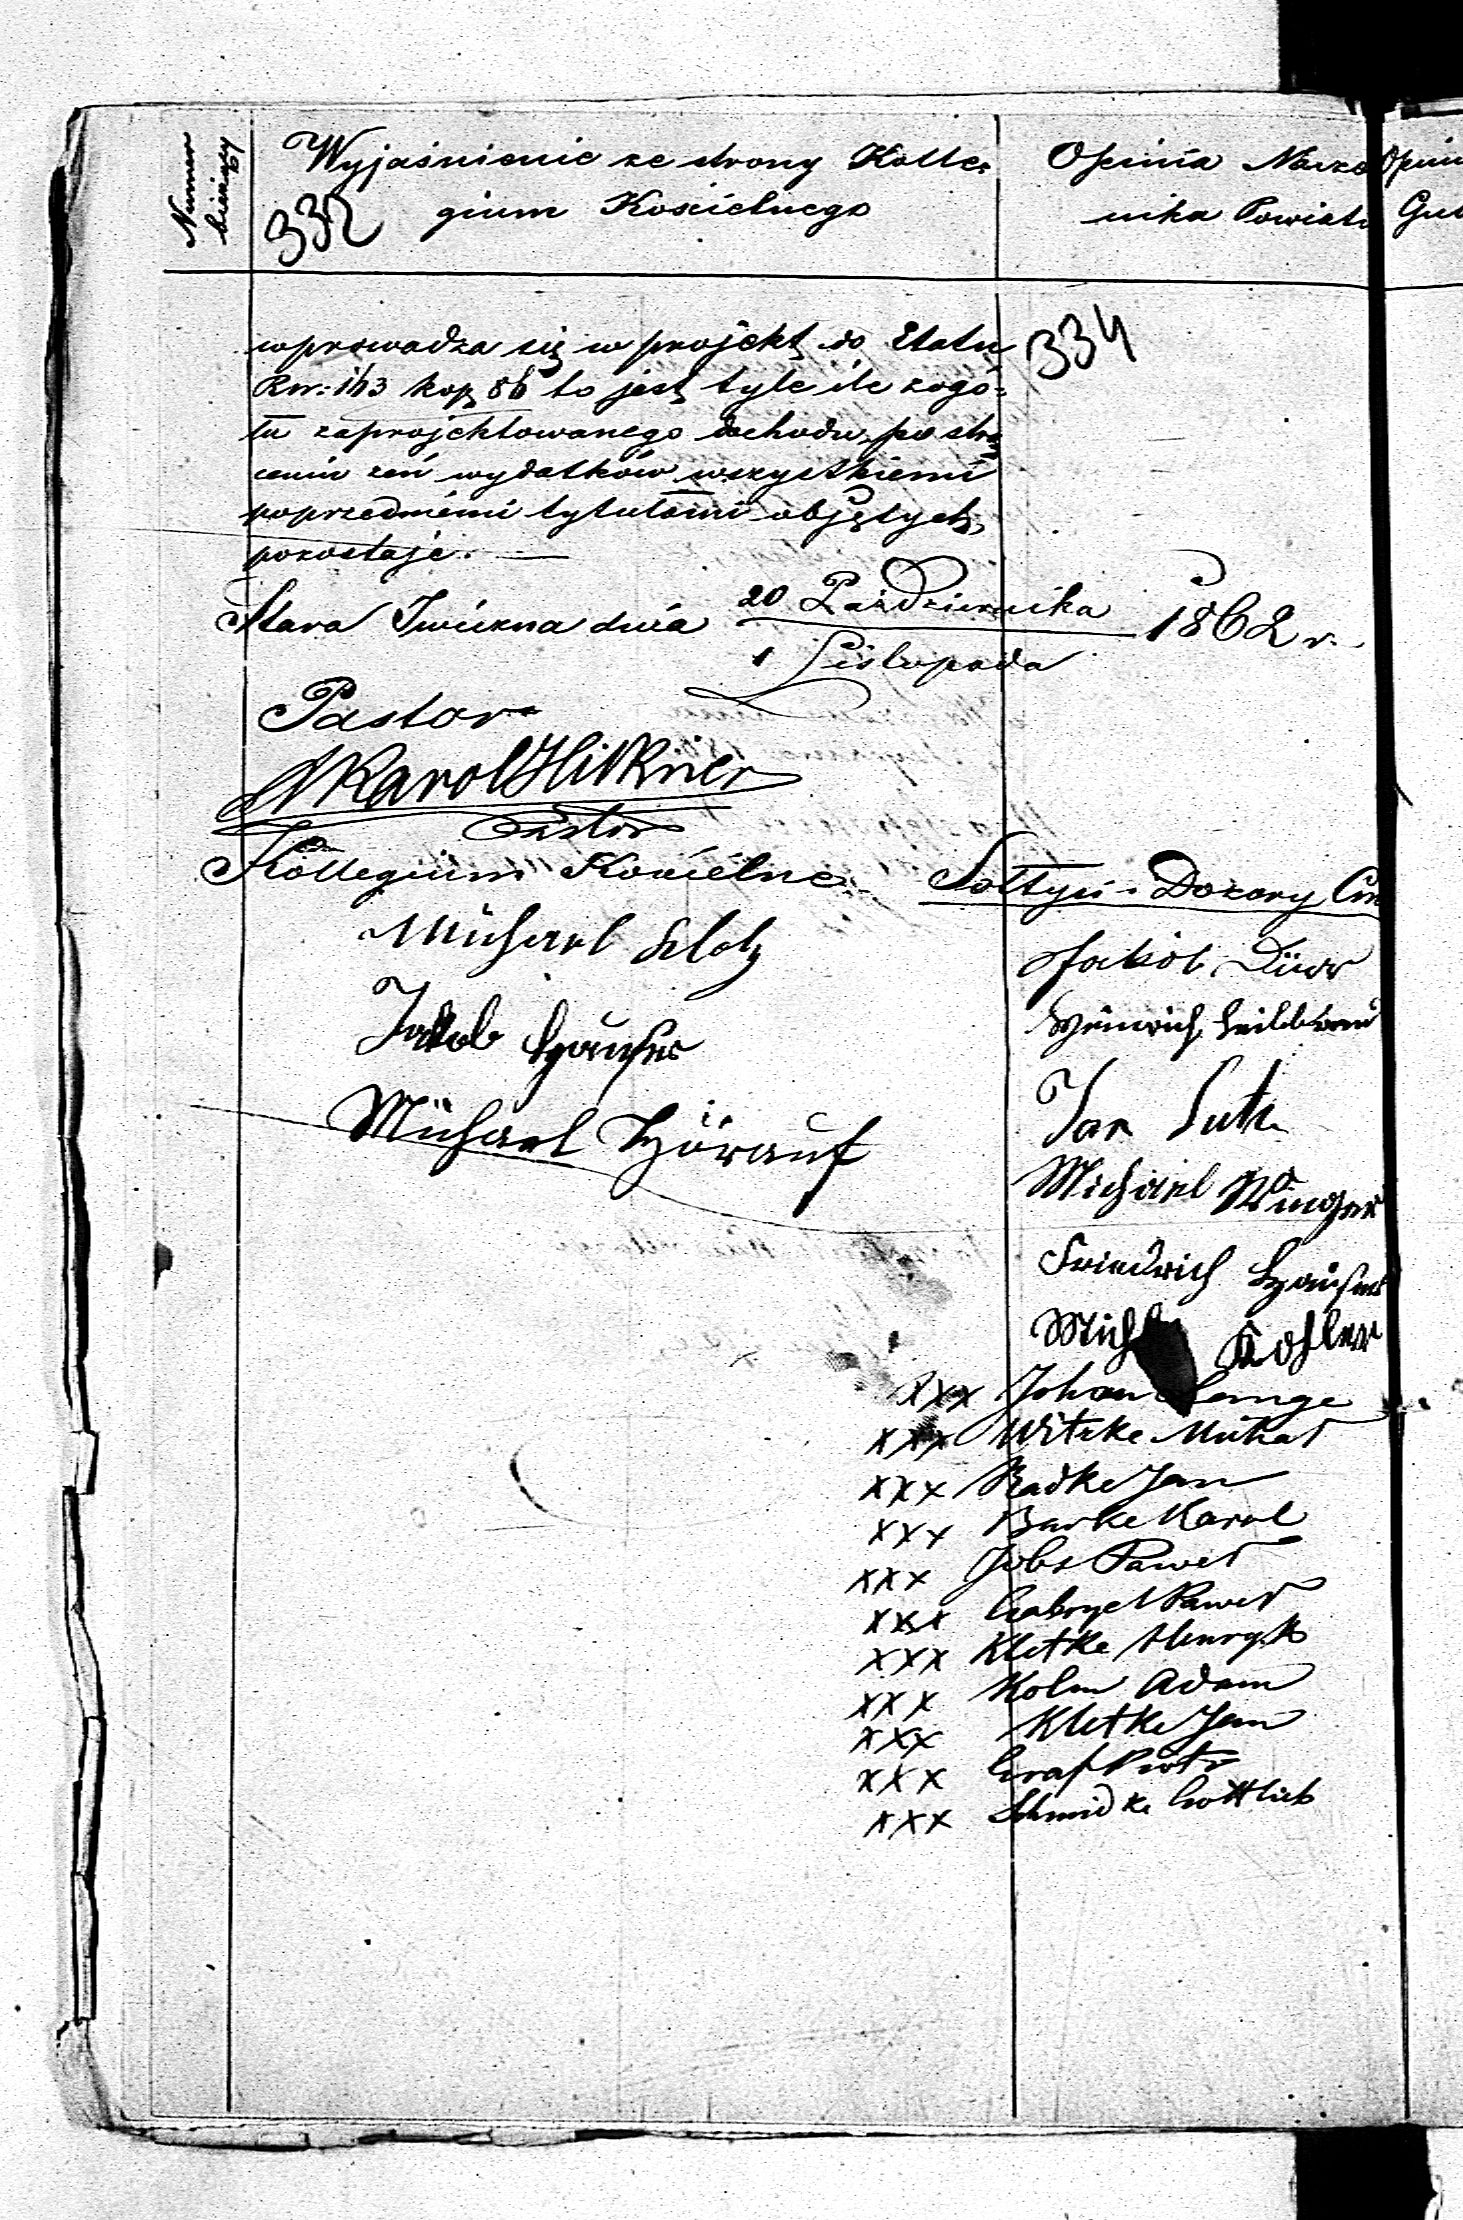 Numer bieżący
Wyjaśnienie ze strony Kolle-
gium Kościelnego
332
Opinia Nacze
nika Powiatu
Opini
Gub
334
wprowadza się w projekt do Etatu
Rsr: 163 kop 86 to jest tyle ile zogó-
łu zaprojektowanego dochodu, po strą
ceniu zeń wydatków wszystkiemi
poprzedniemi tytułami objętych,
pozostaje.
Stara Iwiczna dnia 20 Października 1862 r.
1 Listopada
Pastor
Karol
Pastor
Kollegium Kościelne
Michael Klotz
Jakob Häuser
Michael Hörauf
Sołtysi i Dozory
Jakób Dürr
Heinrich Heilbronn
Jan Lutz
Michael Winger
Friedrich Häuser
Mich Kohler
xxx Johan Lemge
xxx Witzke Michał
xxx Radke Jan
xxx Barke Karol
xxx Jobs Paweł
xxx Gabryel Paweł
xxx Kletke Henryk
xxx Kolm Adam
xxx Kletke Jan
xxx Graf Piotr
xxx Schmidke Gottlieb